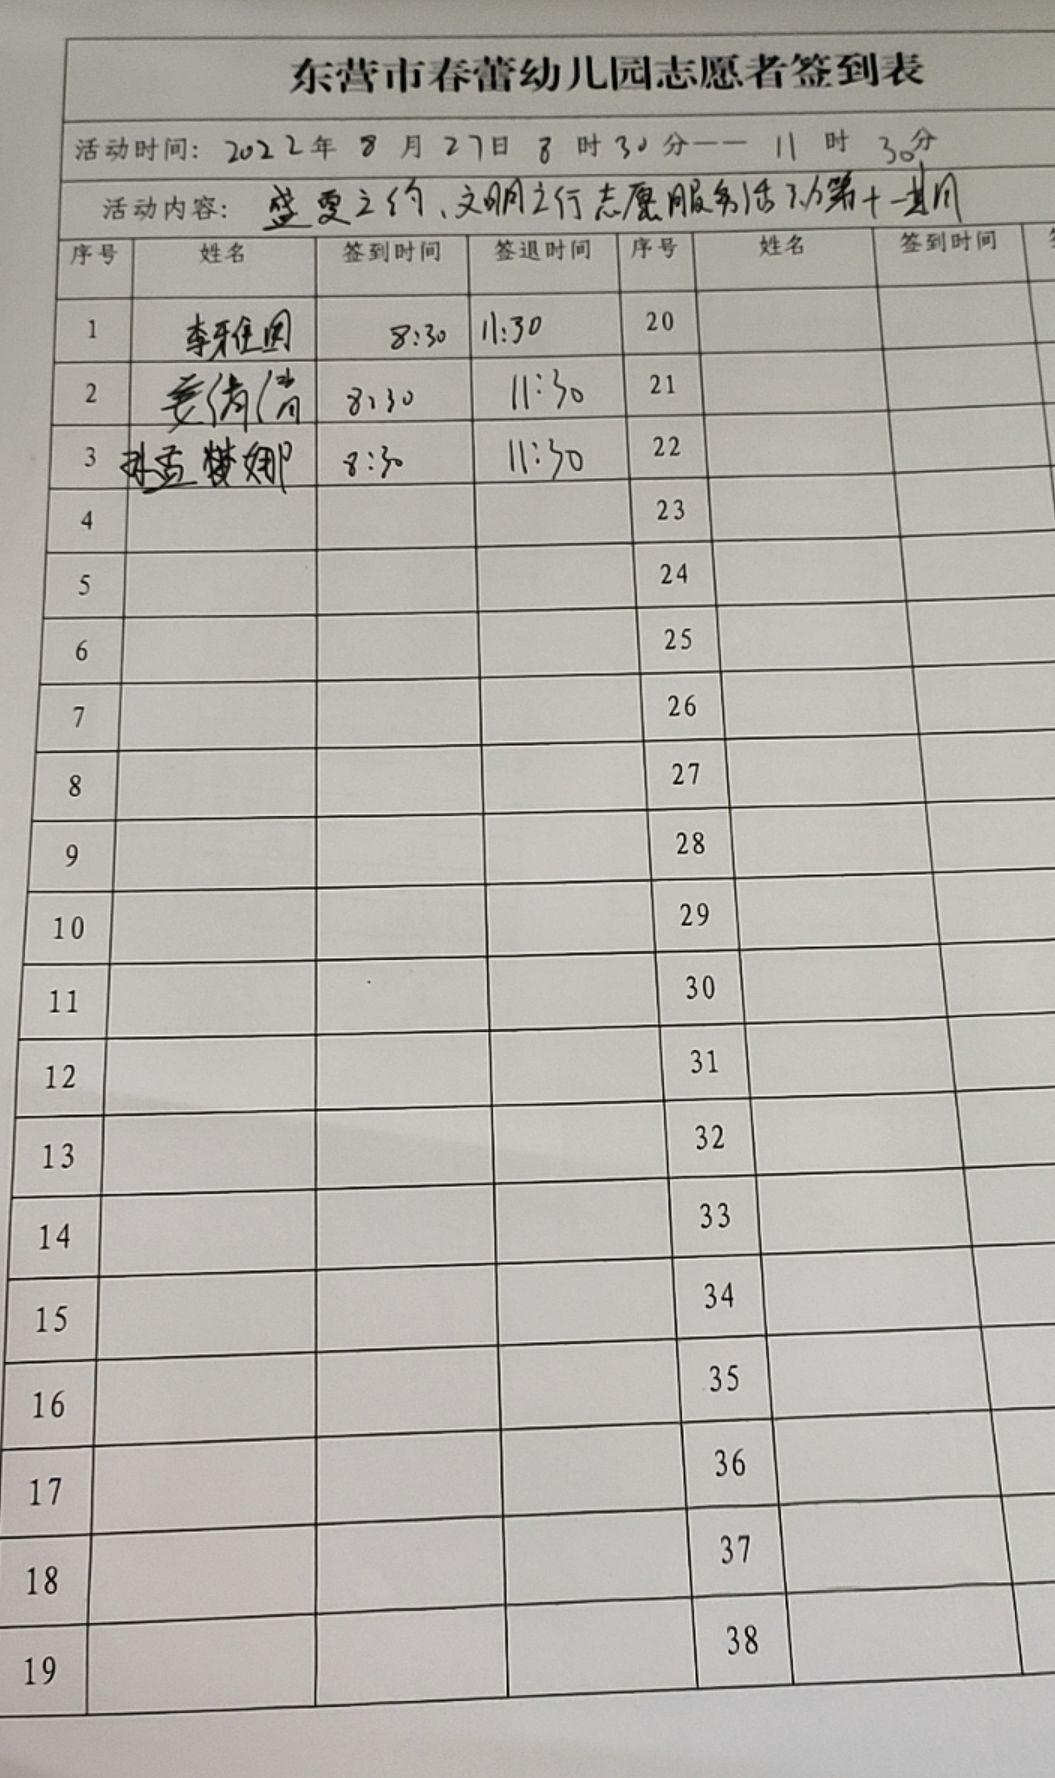 东营市春蕾幼儿园志愿者签到表
活动时间: 2022年 8 月 27日 8 时 30 分—— 11 时 30分
活动内容: 盛夏之约、文明之行志愿服务活动第十一期
序号 姓名 签到时间 签退时间 序号 姓名 签到时间
1 李雅 8:30 11:30 20
2 姜倩倩 8:30 11:30 21
3 孙孟楚娜 8:30 11:30 22
4 23
5 24
6 25
7 26
8 27
9 28
10 29
11 30
12 31
13 32
14 33
15 34
16 35
17 36
18 37
19 38